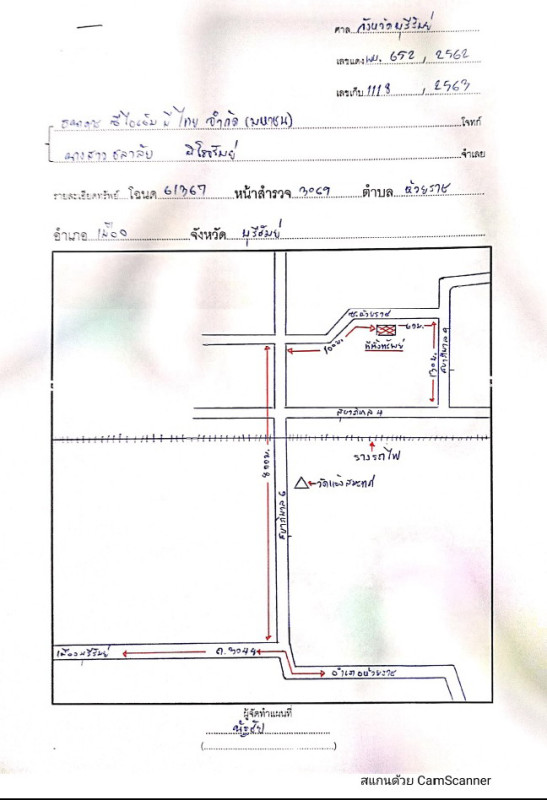 ศาล จังหวัดบุรีรัมย์
เลขแดง ผบ. 652 , 2562
เลขเก็บ 1118 , 2563
ธนาคาร ซีไอเอ็ม บี ไทย จำกัด (มหาชน) โจทก์
นางสาว ชลาลัย จำเลย
รายละเอียดทรัพย์ โฉนด 61367 หน้าสำรวจ 3069 ตำบล ห้วยราช
อำเภอ เมือง จังหวัด บุรีรัมย์
ซ.ห้วยราช
60ม.
100ม.
ที่ตั้งทรัพย์
130ม.
สุขาภิบาล 9
สุขาภิบาล 4
รางรถไฟ
800ม.
สุขาภิบาล 6
วัดแจ้งสมทศ
เมืองบุรีรัมย์
ถ.3044
อำเภอห้วยราช
ผู้จัดทำแผนที่
สแกนด้วย CamScanner